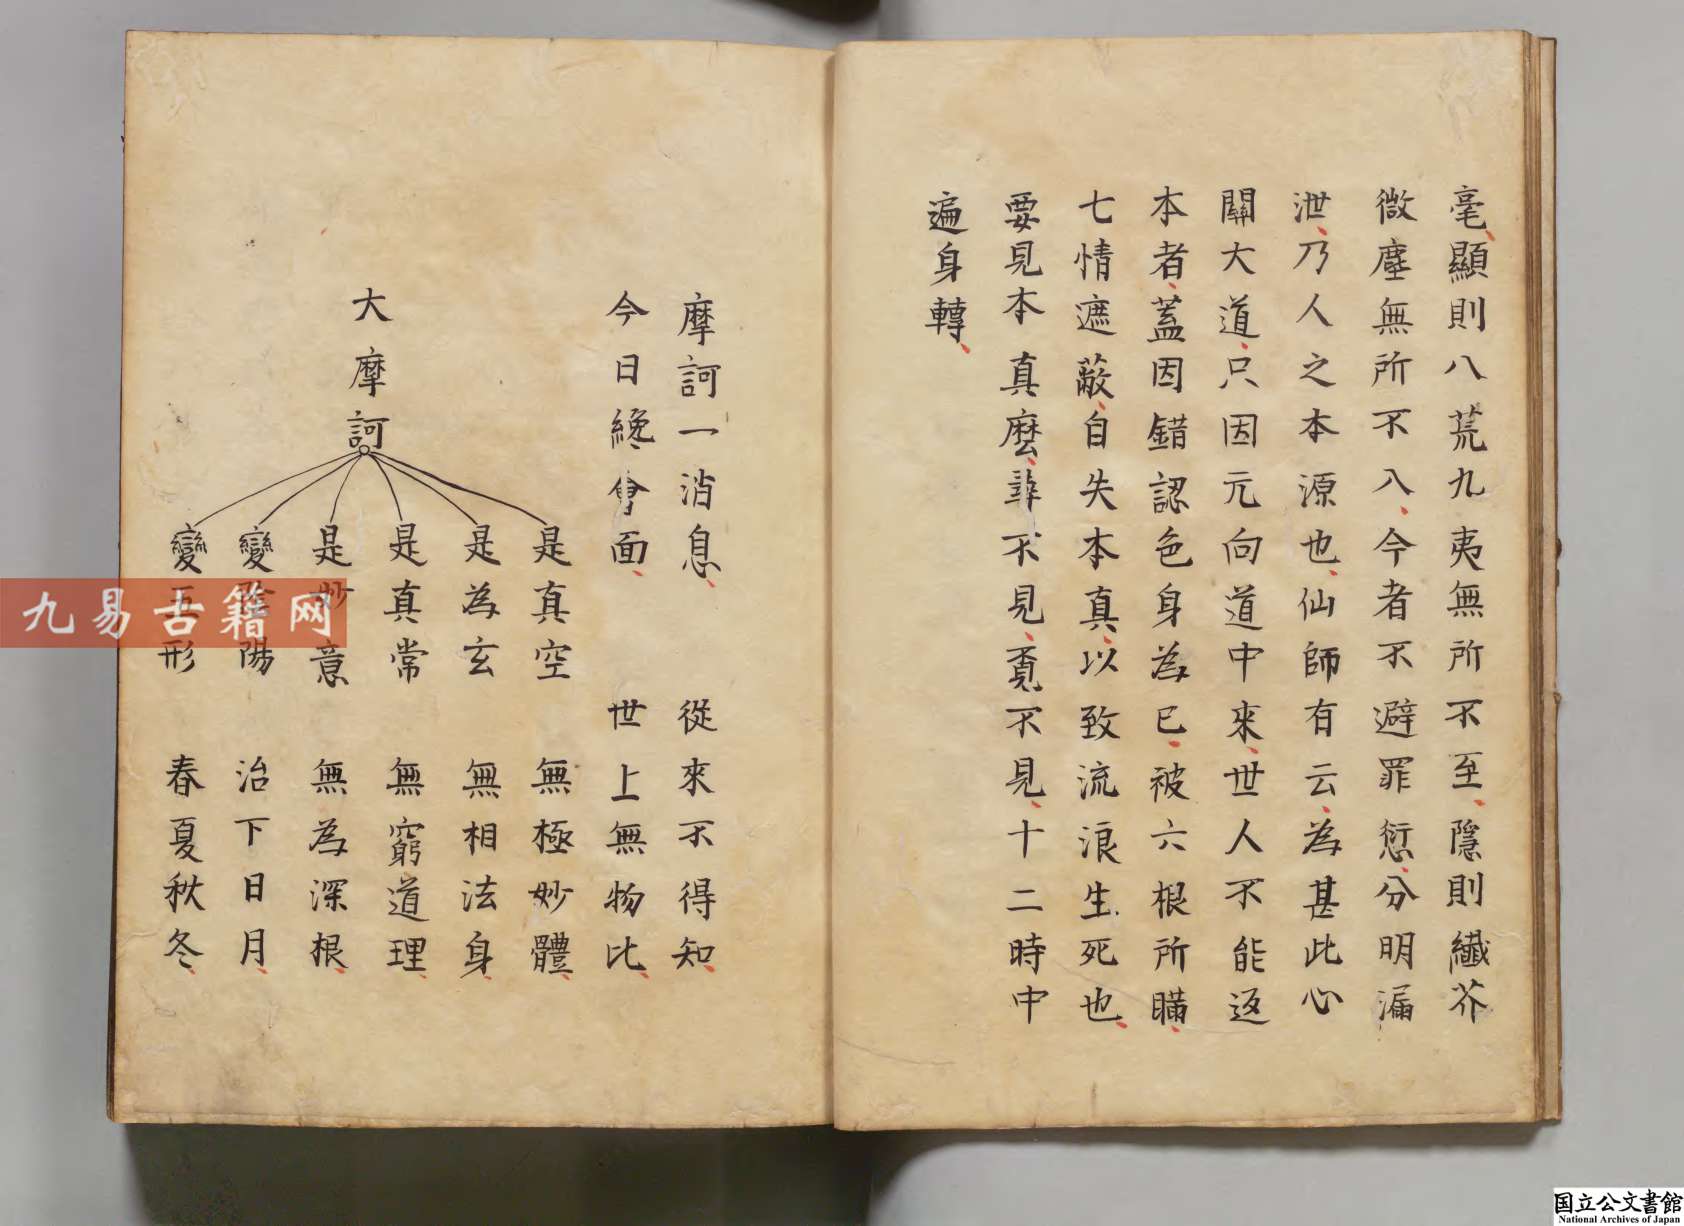 毫顯則八荒九夷無所不至隱則纎芥
微塵無所不入今者不避罪愆分明漏
泄乃人之本源也仙師有云為甚此心
關大道只因元向道中來世人不能返
本者蓋因錯認色身為已被六根所瞞
七情遮蔽自失本真以致流浪生死也
要見本真麽尋不見覔不見十二時中
遍身轉
摩訶一消息 從來不得知
今日纔會面 世上無物比
大摩訶
是真空 無極妙體
是為玄 無相法身
是真常 無窮道理
是妙意 無為深根
變陰陽 治下日月
變五形 春夏秋冬
九易古籍网
国立公文書館
National Archives of Japan